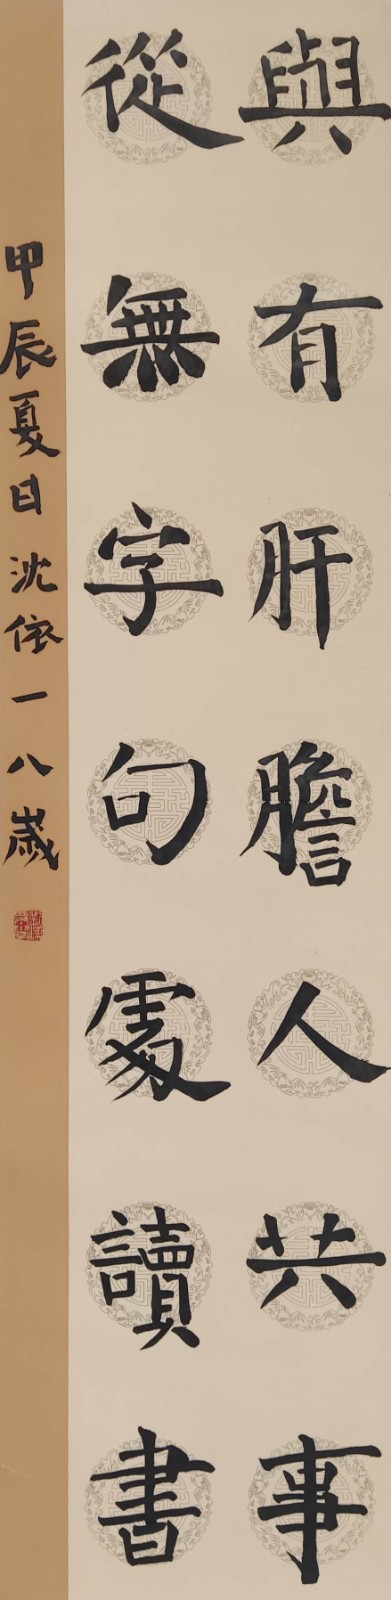 與有肝膽人共事
從無字句處讀書
甲辰夏日沈依一八歲